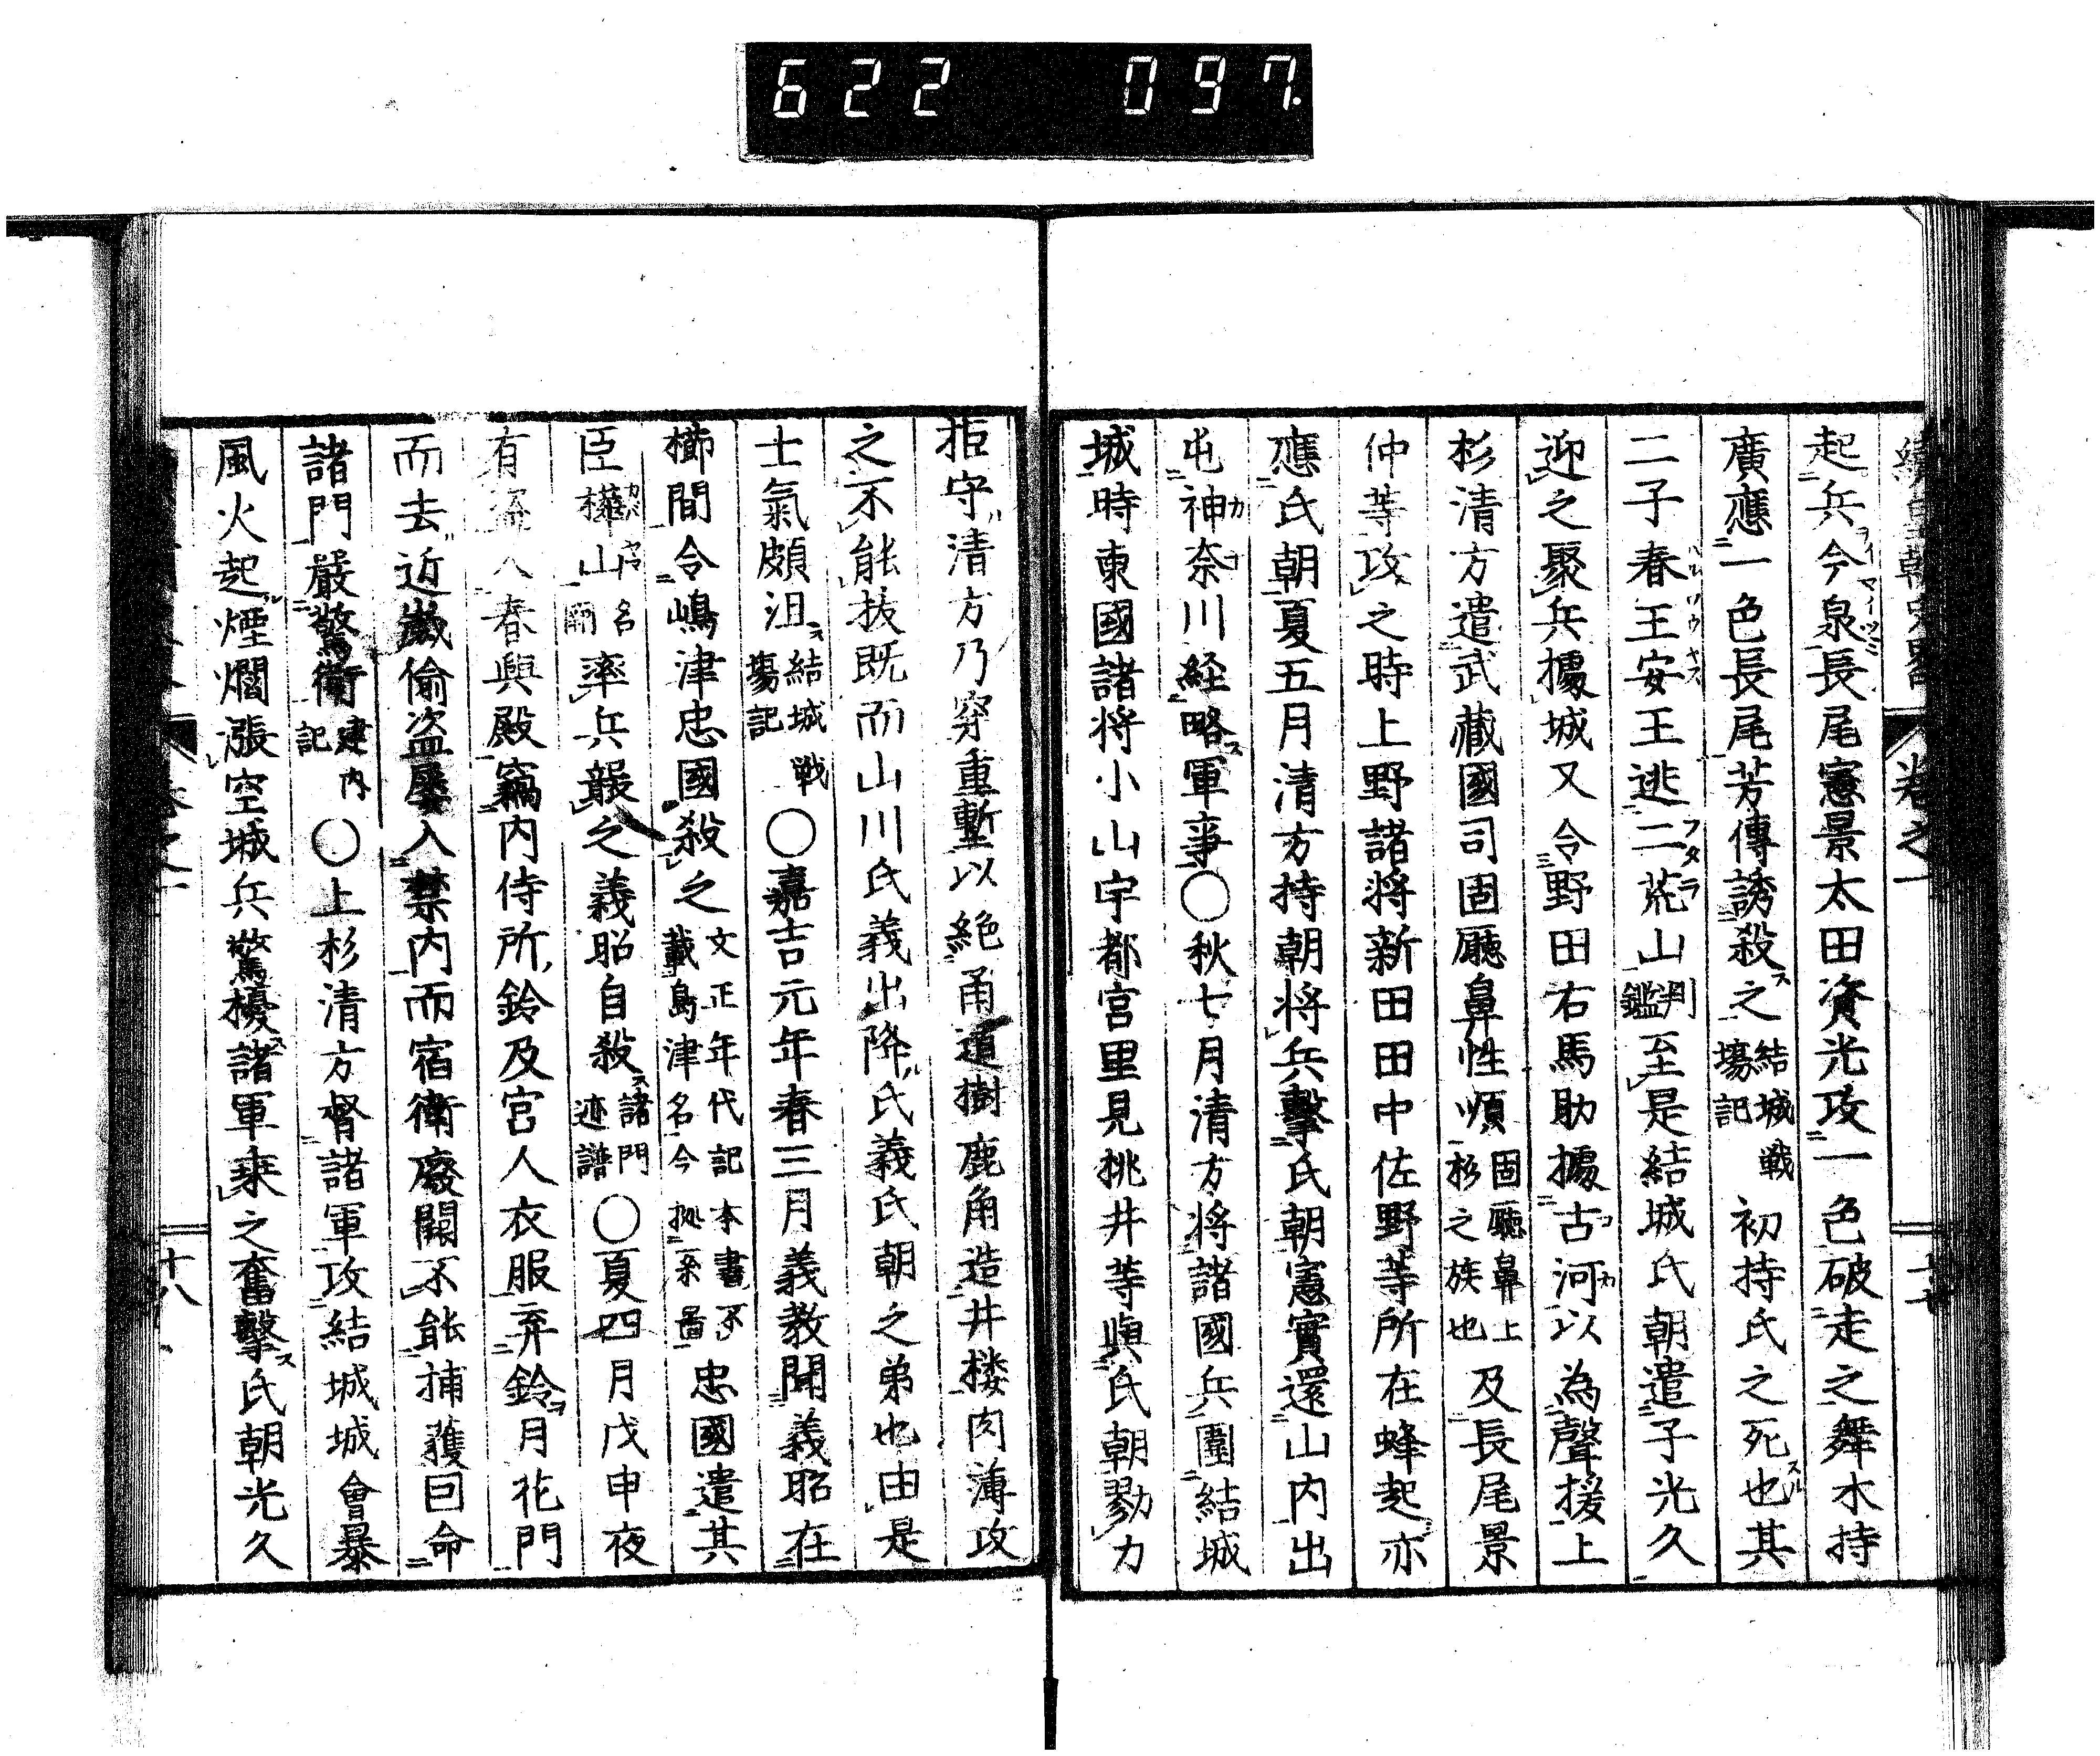 622 097.
卷之一
起兵今泉長尾憲景太田資光攻一色破走之舞木持
廣應一色長尾芳傳誘殺之結城戦塲記初持氏之死也其
二子春王安王逃二荒山判鑑至是結城氏朝遣子光久
迎之聚兵據城又令野田右馬助據古河以為聲援上
杉清方遣武藏國司固廳鼻性順固廳鼻上杉之族也及長尾景
仲等攻之時上野諸將新田田中佐野等所在蜂起亦
應氏朝夏五月清方持朝將兵擊氏朝憲實還山内出
屯神奈川経略軍事〇秋七月清方将諸國兵圍結城
城時東國諸将小山宇都宮里見桃井等與氏朝勠力
拒守清方乃穿重塹以絶甬道樹鹿角造井楼肉薄攻
之不能抜既而山川氏義出降氏義氏朝之弟也由是
士氣頗沮結城戦塲記〇嘉吉元年春三月義教聞義昭在
櫛間令嶋津忠國殺之文正年代記本書不載島津名今拠系圖忠國遣其
臣樺山名闕率兵襲之義昭自殺諸門迹譜〇夏四月戊申夜
有盗入春興殿竊内侍所鈴及宮人衣服弃鈴月花門
而去近歳偷盗屡入禁内而宿衛廢闕不能捕獲囙命
諸門嚴驚衛建内記〇上杉清方督諸軍攻結城城會暴
風火起煙爓漲空城兵驚擾諸軍乗之奮擊氏朝光久
十八